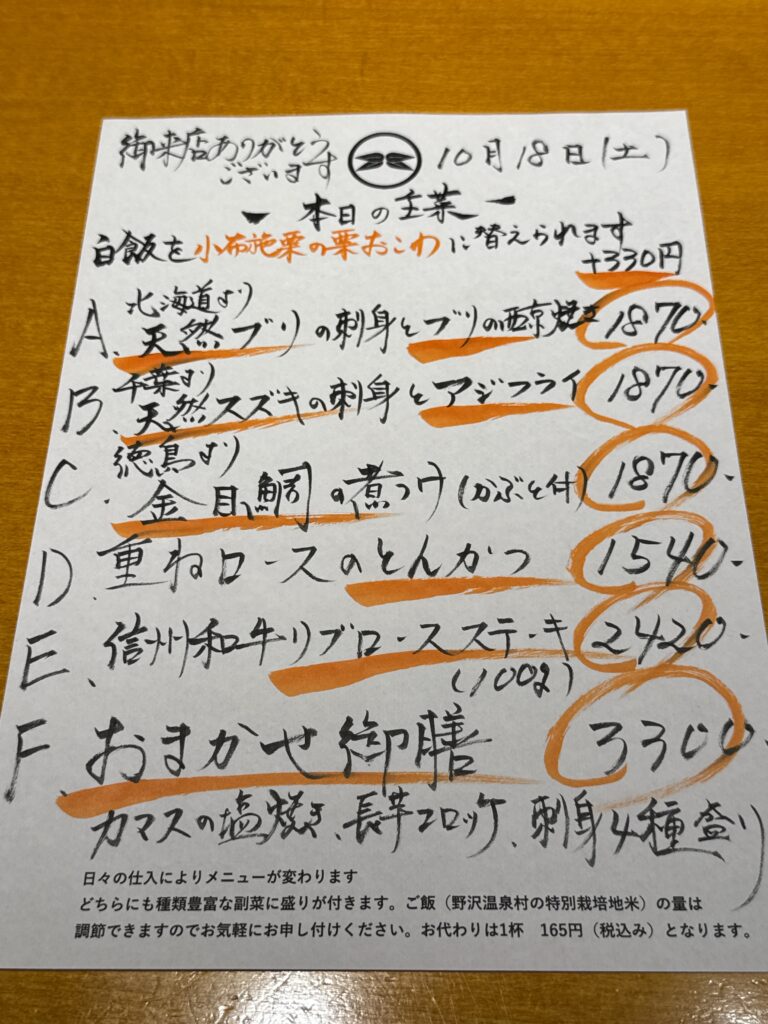 御来店ありがとう
ございます
10月18日(土)
本日の主菜
白飯を小布施栗の栗おこわに替えられます
+330円
北海道より
A、天然ブリの刺身とブリの西京焼き 1870-
千葉より
B、天然スズキの刺身とアジフライ 1870-
徳島より
C、金目鯛の煮つけ(かぶと付) 1870-
D、重ねロースのとんかつ 1540-
E、信州和牛リブロースステーキ 2420-
(100g)
F、おまかせ御膳 3300-
カマスの塩焼き、長芋コロッケ、刺身4種盛り
日々の仕入によりメニューが変わります
どちらにも種類豊富な副菜に盛りが付きます。ご飯（野沢温泉村の特別栽培地米）の量は
調節できますのでお気軽にお申し付けください。お代わりは1杯　165円（税込み）となります。